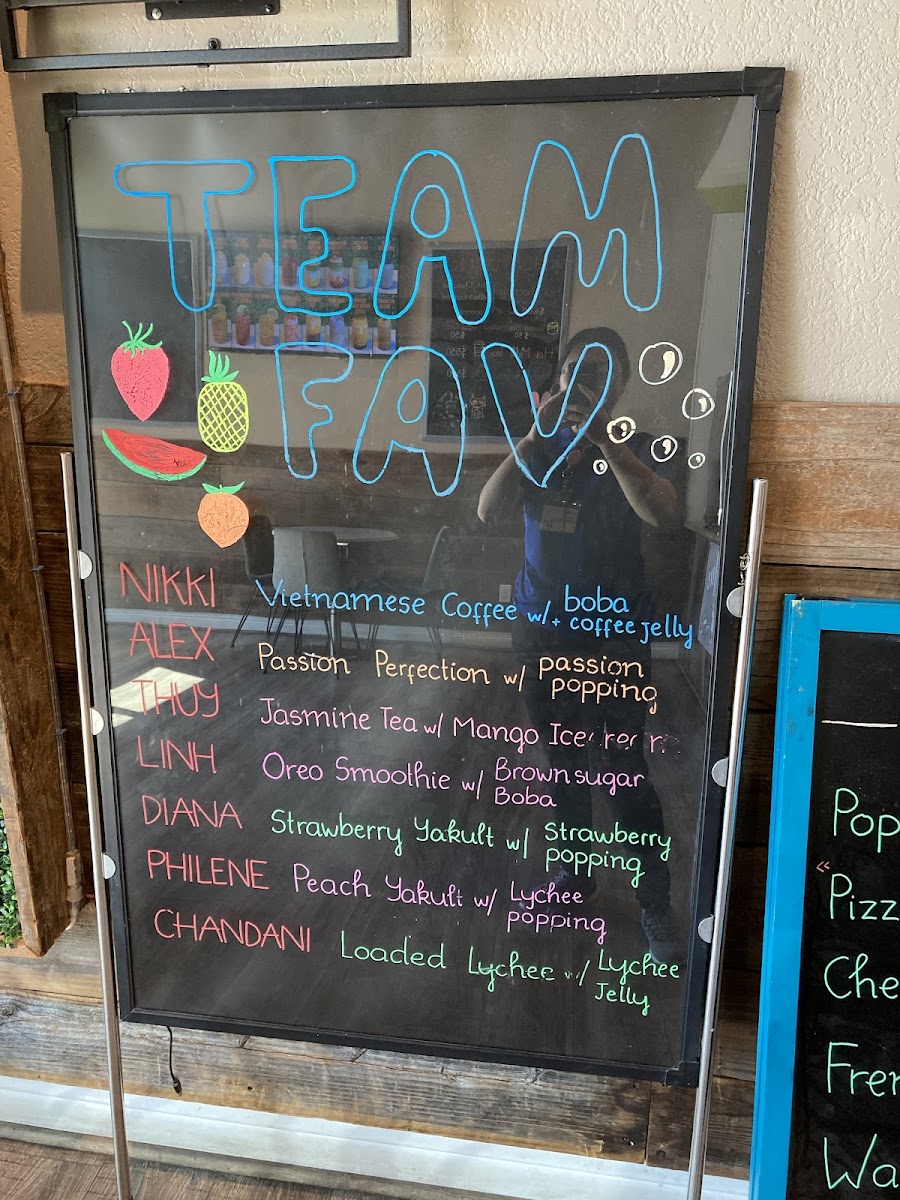 TEAM
FAV
NIKKI Vietnamese Coffee w/ boba
+ coffee jelly
ALEX Passion Perfection w/ passion
popping
THUY Jasmine Tea w/ Mango
LINH Oreo Smoothie w/ Brown sugar
Boba
DIANA Strawberry Yakult w/ Strawberry
popping
PHILENE Peach Yakult w/ Lychee
popping
CHANDANI Loaded Lychee w/ Lychee
Jelly
Pop
"Pizz
Che
Fren
Wa